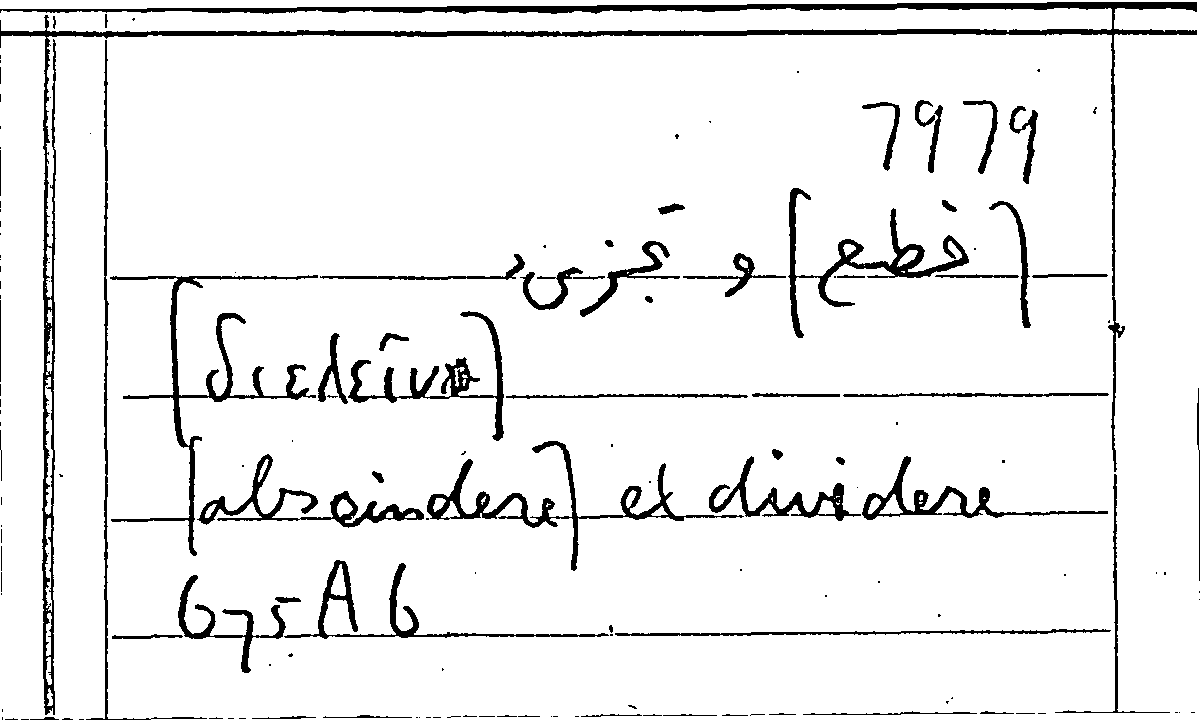 7979
[قطع] و تجزىء
[διελεῖν]
[abscindere] et dividere
675A6